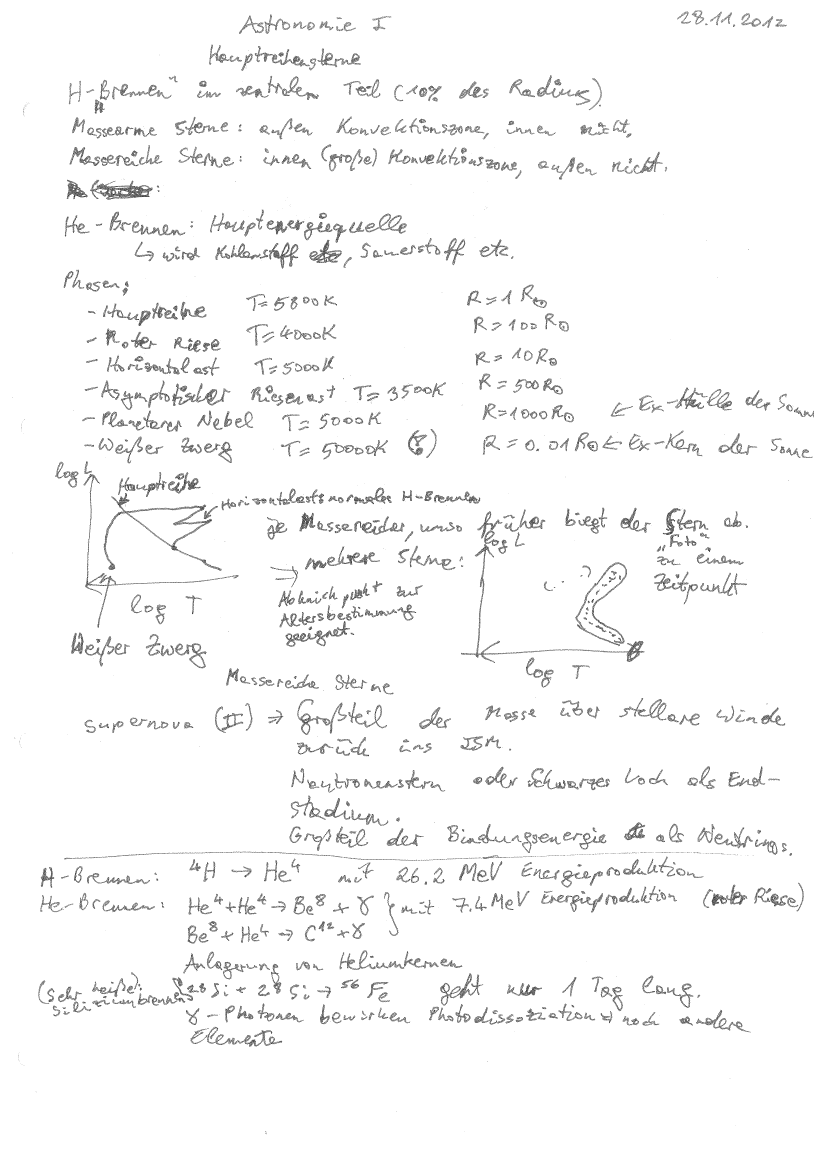 Astronomie I
28.11.2012
Hauptreihensterne
"H-Brennen" im zentralen Teil (10% des Radius).
Massearme Sterne: außen Konvektionszone, innen nicht.
Massereiche Sterne: innen (große) Konvektionszone, außen nicht.
He-Brennen: Hauptenergiequelle
↳ wird Kohlenstoff, Sauerstoff etc.
Phasen:
- Hauptreihe T=5800K R=1R☉
- Roter Riese T=4000K R=100R☉
- Horizontalast T=5000K R=10R☉
- Asymptotischer Riesenast T=3500K R=500R☉
- Planetarer Nebel T=5000K R=1000R☉ ← Ex-Hülle der Sonne
- Weißer Zwerg T=50000K (?) R=0.01R☉ ← Ex-Kern der Sonne
log L
Hauptreihe
Horizontalast: normales H-Brennen
je Massereicher, umso früher biegt der Stern ab.
⇒ mehrere Sterne:
log L
"Foto"
zu einem
Zeitpunkt
Abknickpunkt zur
Altersbestimmung
geeignet.
log T
log T
Weißer Zwerg
Massereiche Sterne
Supernova (II) ⇒ Großteil der Masse über stellare Winde
zurück ins ISM.
Neutronenstern oder Schwarzes Loch als End-
stadium.
Großteil der Bindungsenergie als Neutrinos.
H-Brennen: ⁴H → He⁴ mit 26.2 MeV Energieproduktion
He-Brennen: He⁴+He⁴ → Be⁸ + γ } mit 7.4 MeV Energieproduktion (roter Riese)
Be⁸ + He⁴ → C¹² + γ
Anlagerung von Heliumkernen
(Sehr heiße): ²⁸Si + ²⁸Si → ⁵⁶Fe geht nur 1 Tag lang.
Siliziumbrennen
γ-Photonen bewirken Photodissoziation ⇒ noch andere
Elemente